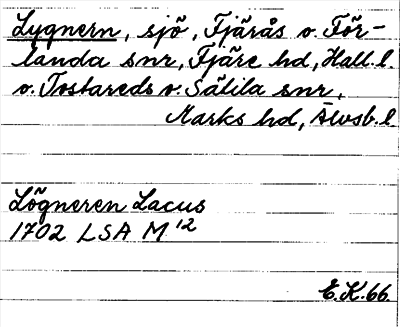 Lygnern, sjö, Fjärås o. För-
landa snr, Fjäre hd, Hall. l.
o. Tostareds o. Sätila snr,
Marks hd, Älvsb. l
Lögneren Lacus
1702 LSA M 12
E.K. 66.